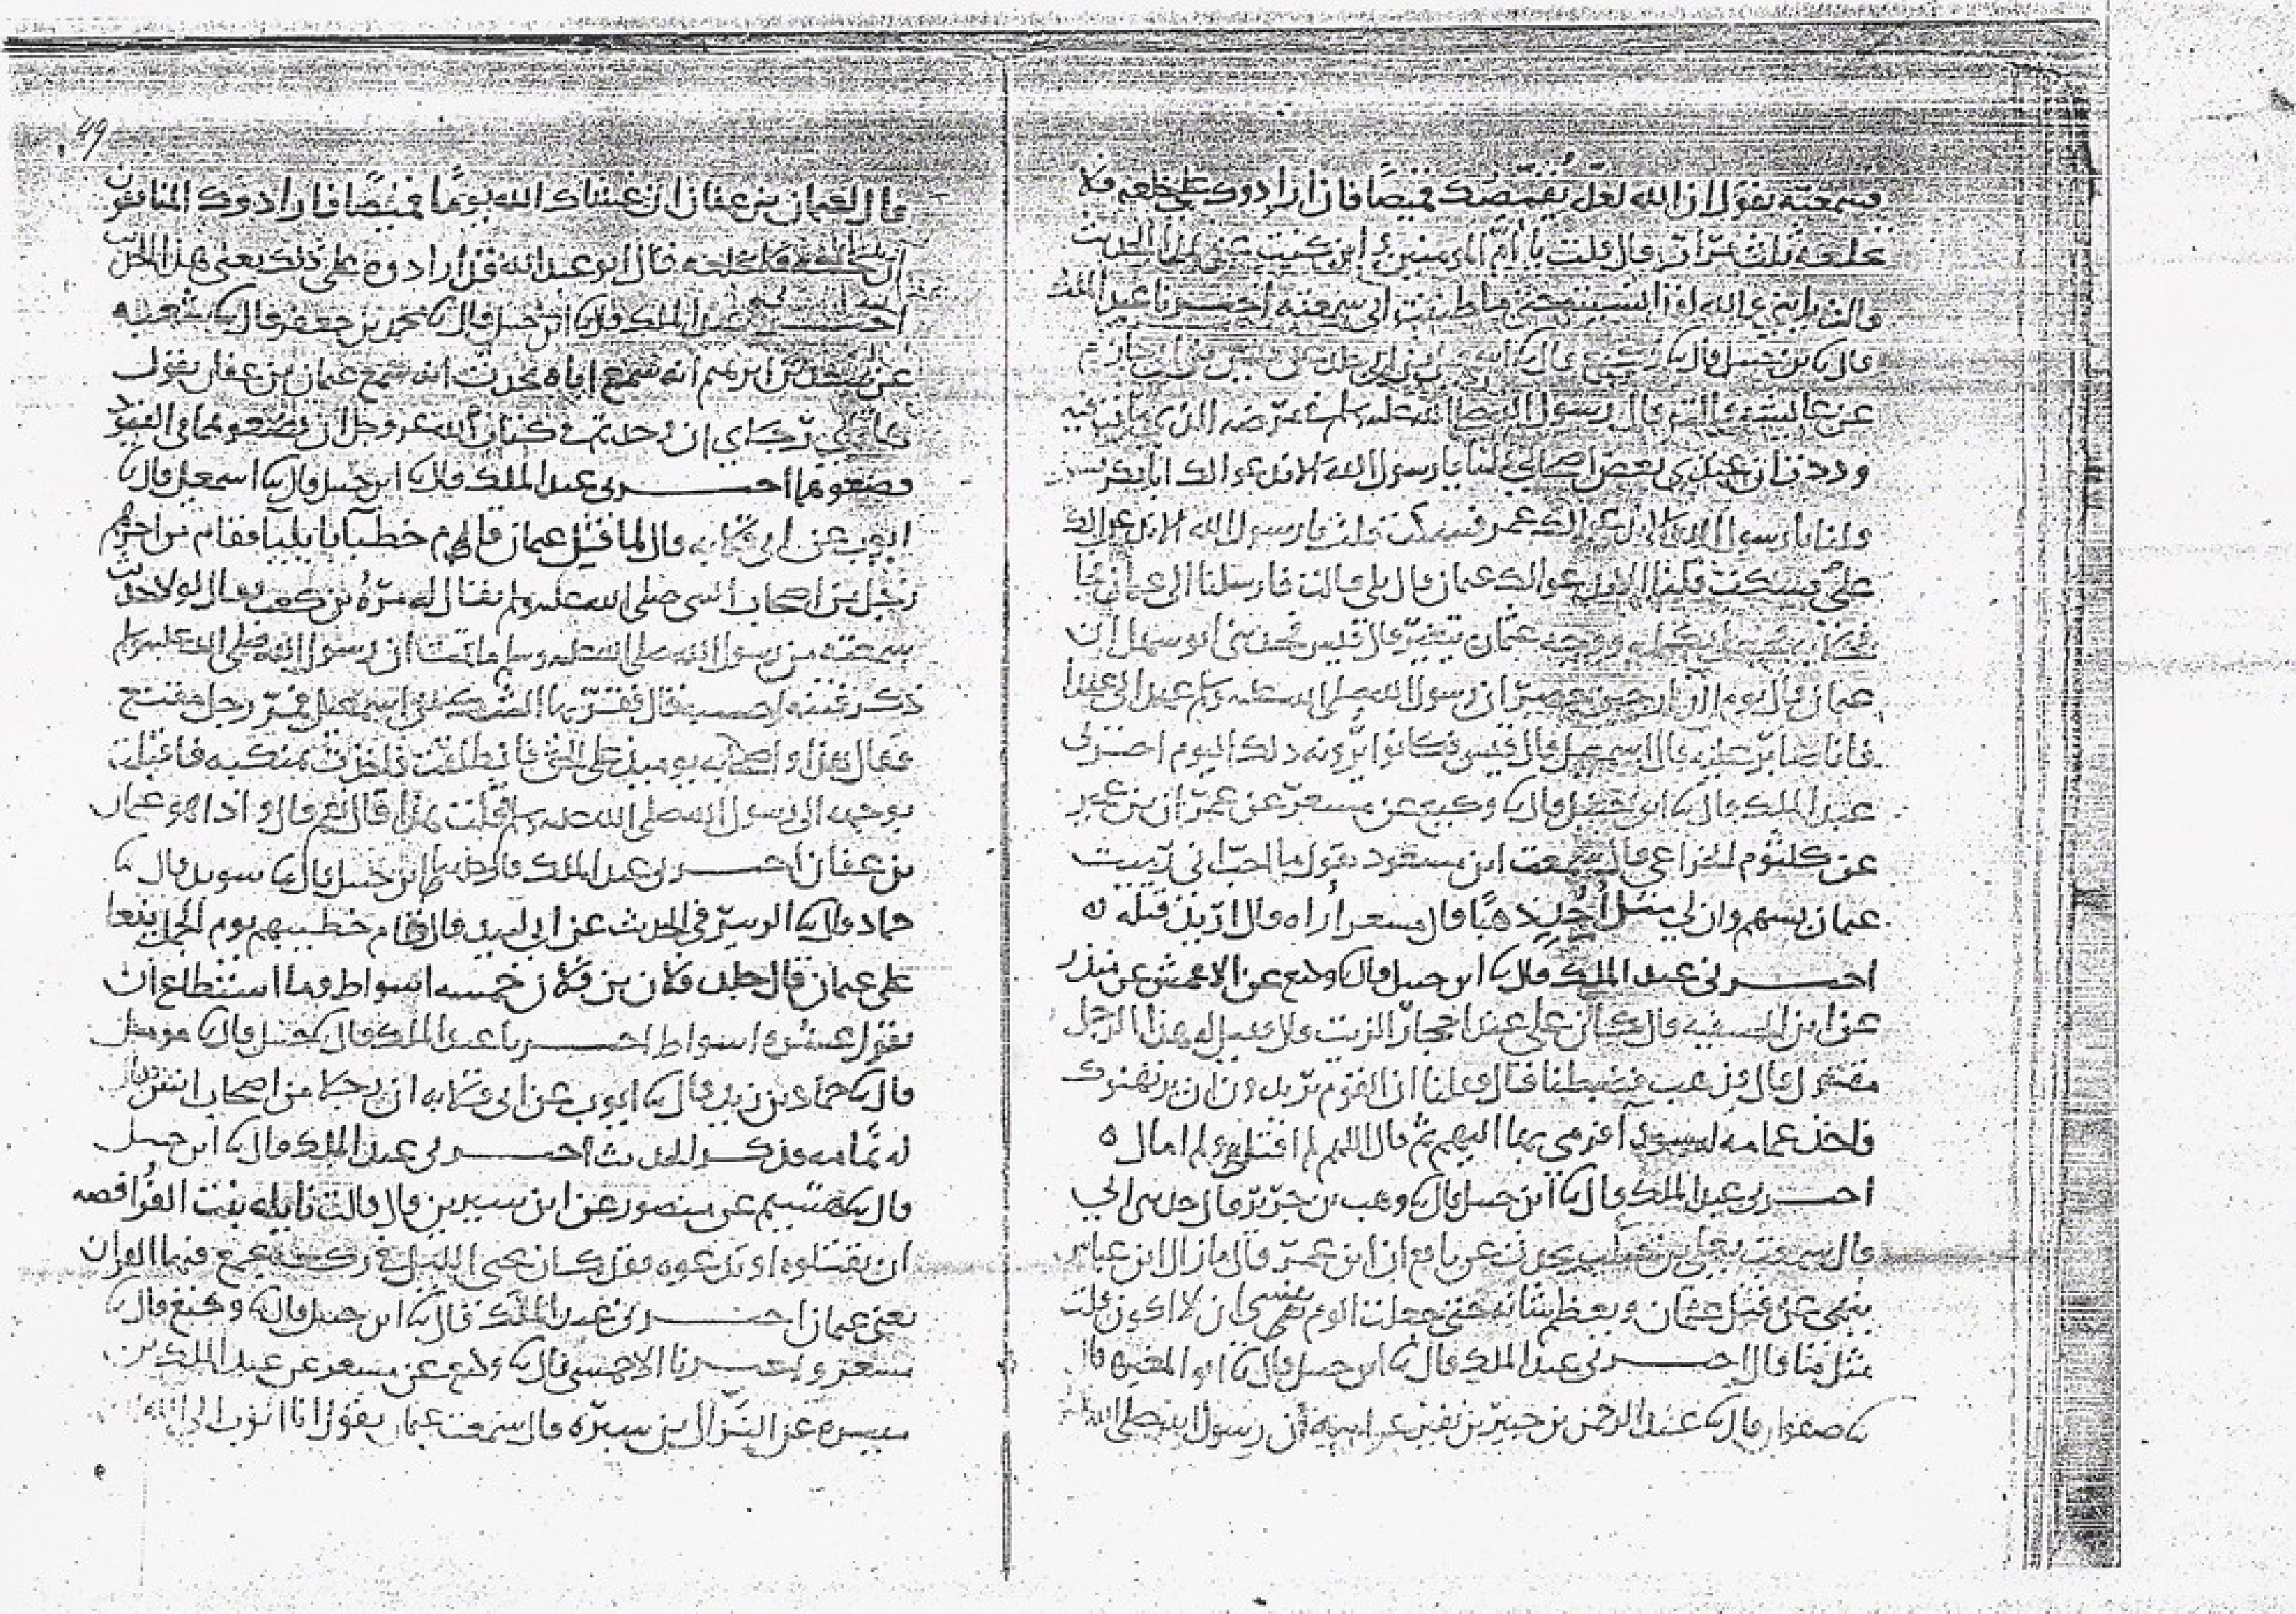 فسمعته يقول ان الله لعله يقمصك قميصا فان ارادوك على خلعه فلا
تخلعه ثلث مرار قال قلت يا ام المومنين فاين كنت عن هذا الحديث
قالت يا بني والله لقد انسيته حتى ما ظننت اني سمعته اخبرنا عبد الملك
قال نا بن حنبل قال نا وكيع قال نا اسمعيل بن ابي خالد عن قيس بن ابي حازم
عن عايشة قالت قال رسول الله صلى الله عليه وسلم في مرضه الذي مات فيه
وددت ان عندي بعض اصحابي قلنا يا رسول الله الا ندعو لك ابا بكر
قلنا يا رسول الله الا ندعو لك عمر فسكت قلت يا رسول الله الا ندعو لك
علي فسكت قلنا الا ندعو لك عثمان قال بلى قالت فارسلنا الى عثمان
يكلمه ووجه عثمان يتغير قال قيس فحدثني ابو سهلة ان
عثمان قال يوم الدار حين حصر ان رسول الله صلى الله عليه وسلم عهد الي عهدا
فانا صابر عليه قال اسمعيل قال قيس فكانوا يرونه ذلك اليوم اخبرني
عبد الملك قال نا ابن حنبل قال نا وكيع عن مسعر عن عمران بن عمير
عن كلثوم الخزاعي قال سمعت ابن مسعود يقول ما احب اني رميت
عثمان بسهم وان لي مثل احد ذهبا قال مسعر اراه قال اريد قتله ه
اخبرني عبد الملك قال نا ابن حنبل قال نا وكيع عن الاعمش عن منذر
عن ابن الحنفيه قال كان علي عند احجار الزيت وقد قيل له هذا الرجل
مقتول قال فذهب فضبطنا قال وقلنا ان القوم يريدون ان يرتهنوك
فاخذ عمامه له سودا فرمى بها اليهم ثم قال اللهم لم اقتل ولم امال ه
اخبرني عبد الملك قال نا ابن حنبل قال نا وهب بن جرير قال حدثني ابي
قال سمعت يعلى بن حكيم يحدث عن نافع ان ابن عمر قال ما زال ابن عباس
ينهى عن قتل عثمان ويعظم شانه حتى جعلت الوم نفسي ان لا اكون قلت
مثل ما قال اخبرني عبد الملك قال نا ابن حنبل قال نا ابو المغيره قال
نا صفوان قال نا عبد الرحمن بن جبير بن نفير عن ابيه ان رسول الله صلى الله
٤٩
قال لعثمان بن عفان ان غشاك الله يوما قميصا فارادوك المنافقون
ان تخلعه فلا تخلعه قال ابو عبد الله قد ارادوه على ذلك يعني هذا الحديث
اخبرني عبد الملك قال نا ابن حنبل قال نا محمد بن جعفر قال نا شعبه
عن سعد بن ابرهيم انه سمع اباه يحدث انه سمع عثمان بن عفان يقول
هاتان رجلاي ان وجدتم في كتاب الله عز وجل ان تضعوهما في القيود
فضعوهما اخبرني عبد الملك قال نا ابن حنبل قال نا اسمعيل قال نا
ايوب عن ابي قلابه قال لما قتل عثمان قام خطبا بايليا فقام من اخرهم
رجل من اصحاب النبي صلى الله عليه وسلم يقال له مره بن كعب فقال لولا حديث
سمعته من رسول الله صلى الله عليه وسلم ما قمت ان رسول الله صلى الله عليه وسلم
ذكر فتنه احسبه قال فقربها الشك من اسمعيل فمر رجل مقنع
فقال هذا واصحابه يومئذ على الحق فانطلقت فاخذت بمنكبيه فاقبلت
بوجهه الى رسول الله صلى الله عليه وسلم فقلت هذا قال نعم قال واذا هو عثمان
بن عفان اخبرني عبد الملك قال نا ابن حنبل قال نا سويد قال نا
حماد قال نا الزبير في الحديث عن ابي لبيد قال قام خطيبهم يوم الجمل ينعا
على عثمان قال جلد فلان بن فلان خمسه اسواط وما استطاع ان
يقول عشره اسواط اخبرنا عبد الملك قال نا حنبل قال نا مومل
قال نا حماد بن زيد قال نا ايوب عن ابي قلابه ان رجلا من اصحاب النبي
له ثمامه فذكر الحديث اخبرني عبد الملك قال نا ابن حنبل
قال نا هشيم عن منصور عن ابن سيرين قال قالت نايله بنت الفرافصه
ان تقتلوه او تدعوه فقد كان يحي الليل في ركعه يجمع فيها القران
يعني عثمان اخبرني عبد الملك قال نا ابن حنبل قال نا وكيع قال نا
مسعر واخبرنا الاحمسي قال نا وكيع عن مسعر عن عبد الملك بن
ميسره عن النزال بن سبره قال سمعت عثمان يقول انا اتوب الى الله